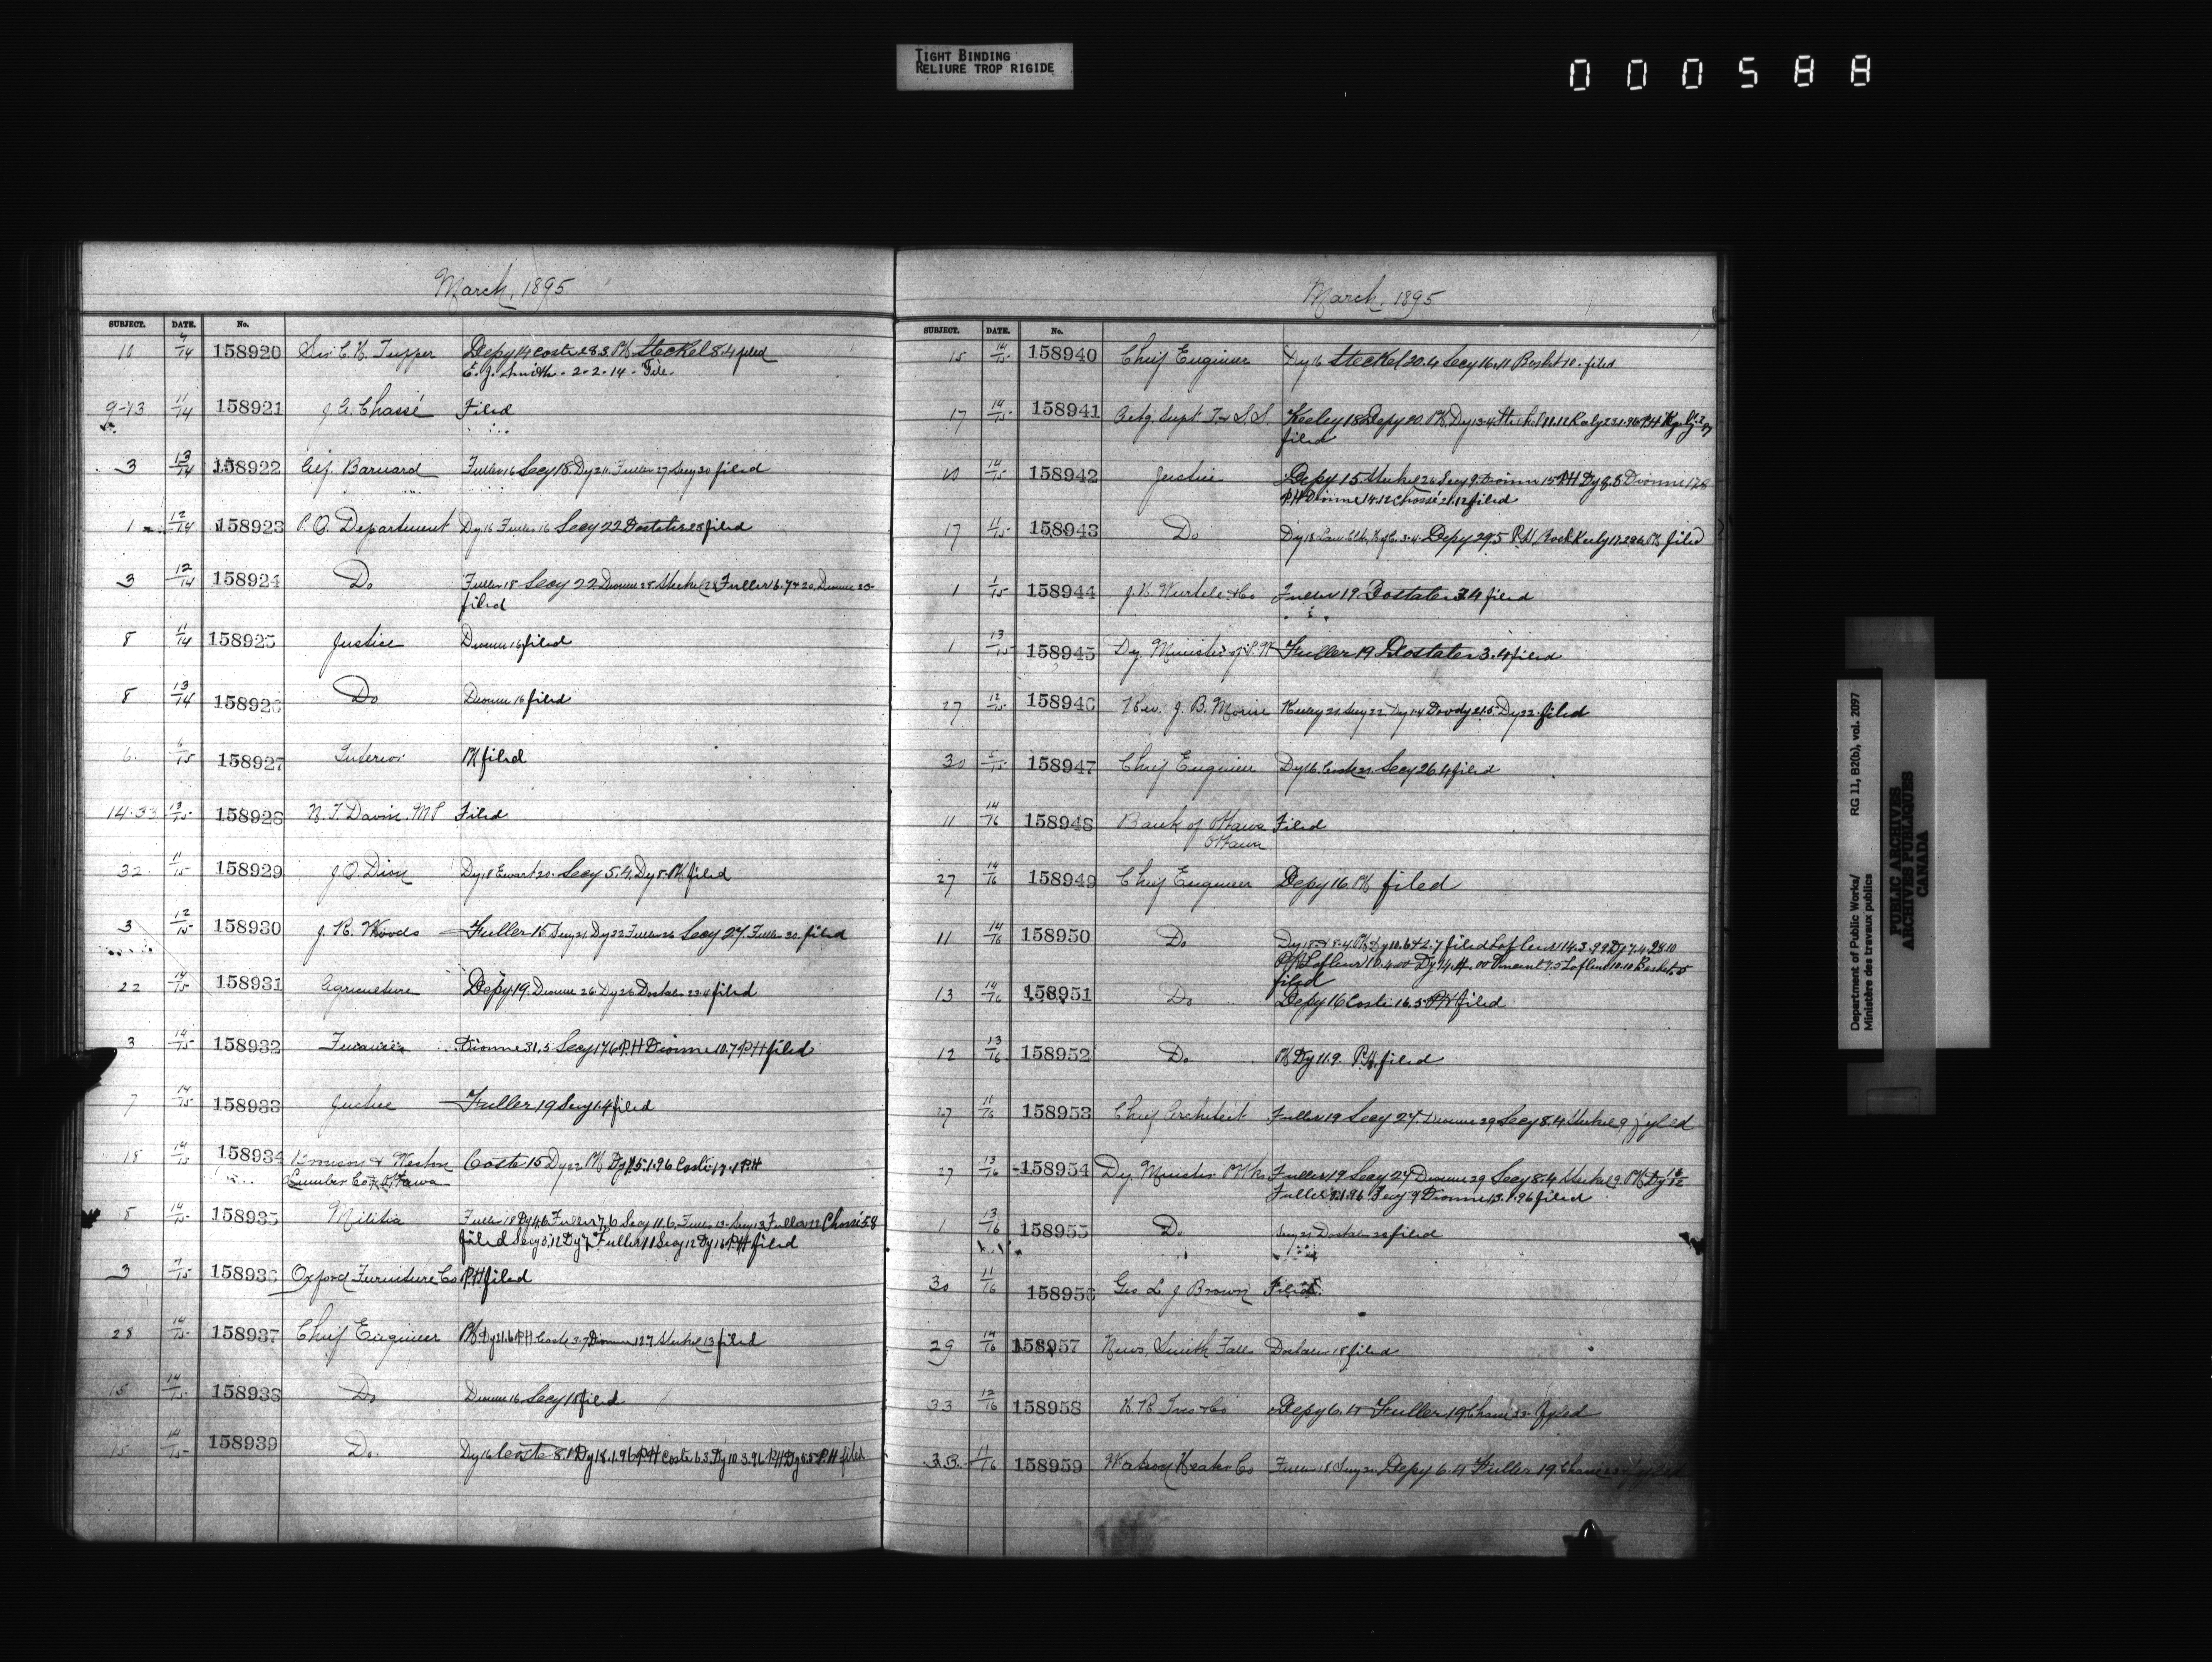 TIGHT BINDING
RELIURE TROP RIGIDE
000588
March, 1895
SUBJECT. DATE. No.
10 14 158920 Sir C. H. Tupper Depy 14 Coste 28.3. PH Steckel 8.4 filed
E. J. Smith - 2-2-14 - File.
9-13 11/14 158921 J. G. Chassé Filed
3 13/14 158922 Barnard Fuller 16 Secy 18 Dy 211 Fuller 27 Secy 30 filed
1 12/14 158923 P. O. Department Dy 16 Fuller 16 Secy 22 Dostaler 28 filed
3 12/14 158924 Do Fuller 18 Secy 22 Dionne 28 Steckel 28 Fuller 16.
filed
8 11/14 158925 Justice Dionne 16 filed
8 13/14 158926 Do Dionne 16 filed
6 6/15 158927 Interior PH filed
14.33 13/15 158928 N. F. Davin. MP Filed
32 11/15 158929 J. O. Dion Dy 18 Ewart 20. Secy 5.4. Dy 8. PH filed
3 12/15 158930 J. R. Woods Fuller 15 Secy 21. Dy 22 Fuller 26 Secy 27. Fuller 30. filed
22 14/15 158931 Agriculture Depy 19. Dionne 26. Dy 26 Dostaler 23.4 filed
3 14/15 158932 Dionne 31.5 Secy 17.6 P.H Dionne 10.7 P.H filed
7 14/15 158933 Justice Fuller 19 Secy 1.4 filed
18 14/15 158934 Bronson & Weston Coste 15 Dy 22 PH Dy 15.1.96 Coste 17.1 P.H
Lumber Co. Ottawa
8 14/15 158935 Militia Fuller 18 Dy 4.6 Fuller 7.6 Secy 11.6. Fuller 13 Secy 13 Fuller 22 Chassé 5.8
filed Secy 5.12 Dy 7 Fuller 11 Secy 12 Dy 16 P.H filed
3 7/15 158936 Oxford Furniture Co P.H filed
28 14/15 158937 Chief Engineer PH Dy 21.6 P.H Coste 3.7 Dionne 12.7 Steckel 13 filed
15 14/15 158938 Do Dionne 16 Secy 18 filed
15 14/15 158939 Do Dy 16 Coste 8.1 Dy 18.1.96 P.H Coste 6.3 Dy 10.3.96 P.H Dy 8.5 P.H filed
March, 1895
SUBJECT. DATE. No.
15 14/15 158940 Chief Engineer Dy 16 Steckel 20.4 Secy 16.11 10. filed
17 14/15 158941 Actg. Supt. T. & S. S. Keeley 18 Depy 20. PH. Dy 13.4 Steckel 11.12 Keely 23.1.96 P.H
filed
10 14/15 158942 Justice Depy 15 Steckel 26 Secy 9. Dionne 15 P.H Dy 8.8 Dionne 17.8
P.H Dionne 14.12 Chassé 21.12 filed
17 11/15 158943 Do Dy 18 Law Clk. 3.4. Depy 29.5 P.H filed
1 1/15 158944 J. H. Wurtele & Co Fuller 19 Dostaler 3.4 filed
1 13/15 158945 Dy. Minister of P. W Fuller 19 Dostaler 3.4 filed
27 12/15 158946 Rev. J. B. Morin Keeley 21. Secy 22 Dy 1.4 Doody 21.5 Dy 22. filed
30 5/15 158947 Chief Engineer Dy 16. Coste 21. Secy 26.4 filed
11 14/16 158948 Bank of Ottawa Filed
Ottawa
27 14/16 158949 Chief Engineer Depy 16. PH filed
11 14/16 158950 Do Dy 18 & 8.4 PH filed Lafleur 14.3.99
filed
13 14/16 158951 Do Depy 16 Coste 16.5 P.H filed
12 13/16 158952 Do PH Dy 11.9. P.H. filed
27 11/16 158953 Chief Architect Fuller 19 Secy 27. Dionne 29 Secy 8.4 Steckel 9 fyled
27 13/16 158954 Dy. Minister P Wks Fuller 19 Secy 27 Dionne 29 Secy 8.4 Steckel 9. PH Dy
Fuller 9.1.96 Secy 9 Dionne 13.1.96 filed
1 13/16 158955 Do Secy 21 Dostaler 22 filed
30 11/16 158956 Geo L. J. Brown Filed.
29 14/16 158957 News, Smith Falls Dostaler 18 filed
33 12/16 158958 H. R. Ives & Co Depy 6.4 Fuller 19 Chassé 23 fyled
33. 11/16 158959 Watson Heater Co Fuller 18 Secy 21 Depy 6.4 Fuller 19 Chassé 23 fyled
Department of Public Works/ RG 11, B2(b), vol. 2097
Ministère des travaux publics
PUBLIC ARCHIVES
ARCHIVES PUBLIQUES
CANADA